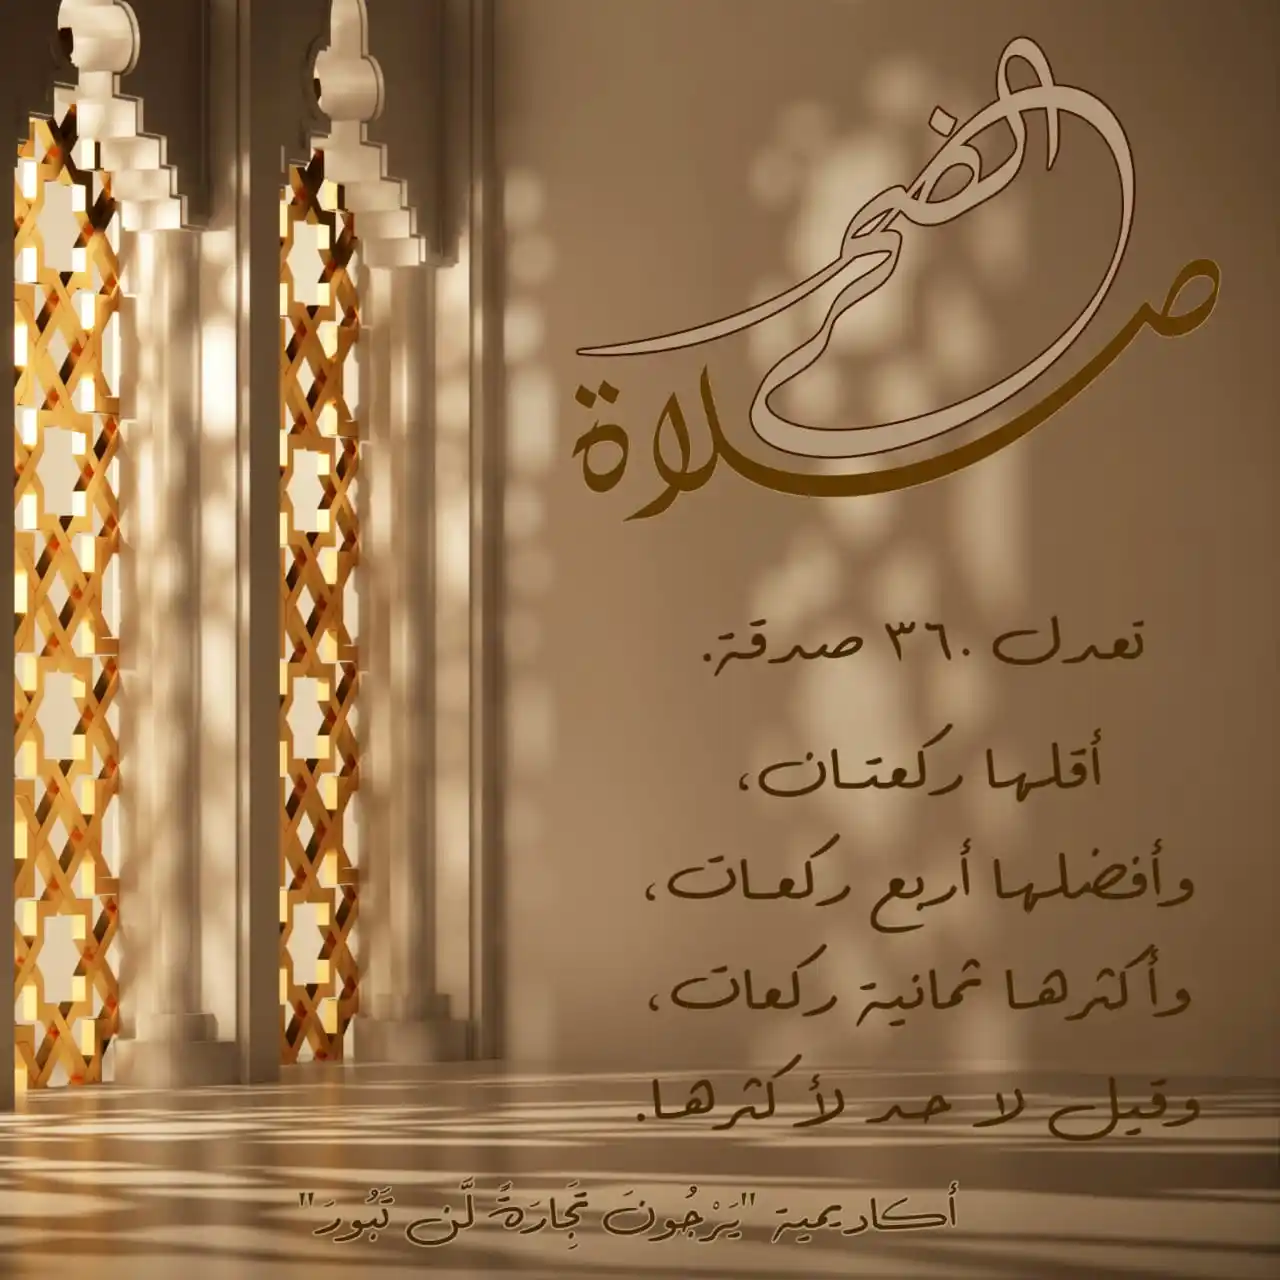 صلاة الضحى
تعدل ٣٦٠ صدقة.
أقلها ركعتان،
وأفضلها أربع ركعات،
وأكثرها ثمانية ركعات،
وقيل لا حد لأكثرها.
أكاديمية "يَرْجُونَ تِجَارَةً لَّن تَبُورَ"